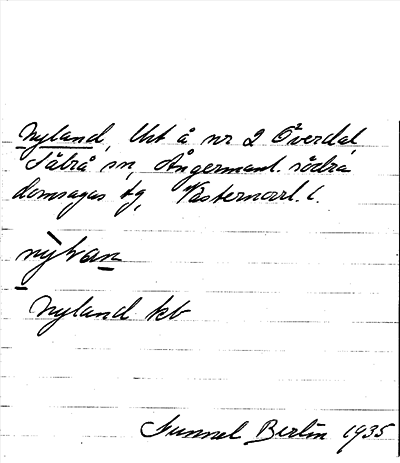 Nyland, Uht å nr 2 Överdal
Säbrå sn, Ångermanl. södra
domsagas tg, Västernorrl. l.
nylan
Nyland kb
Gunnel Berlin 1935